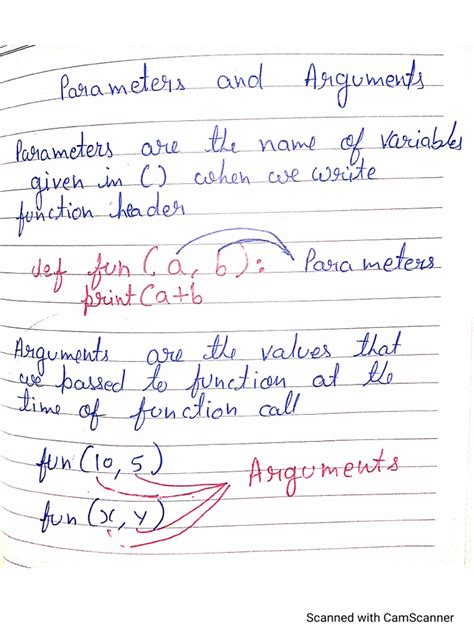 Parameters and Arguments
Parameters are the name of variables
given in () when we write
function header
def fun(a, b): Parameters
print(a+b
Arguments are the values that
we passed to function at the
time of function call
fun(10, 5)
Arguments
fun(x, y)
Scanned with CamScanner